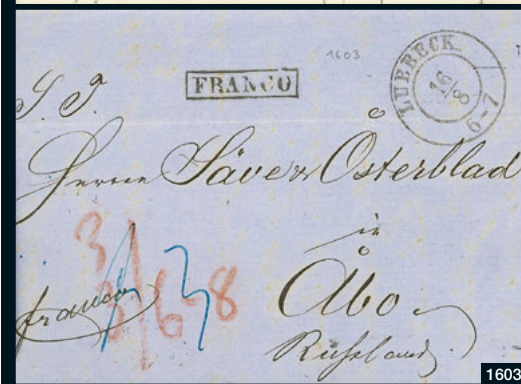 1603
FRANCO
LUBECK.
16/8
6-7
S. T.
Herren Säver & Osterblad
in
Åbo
Russland
franco
3
3/68
3
1603